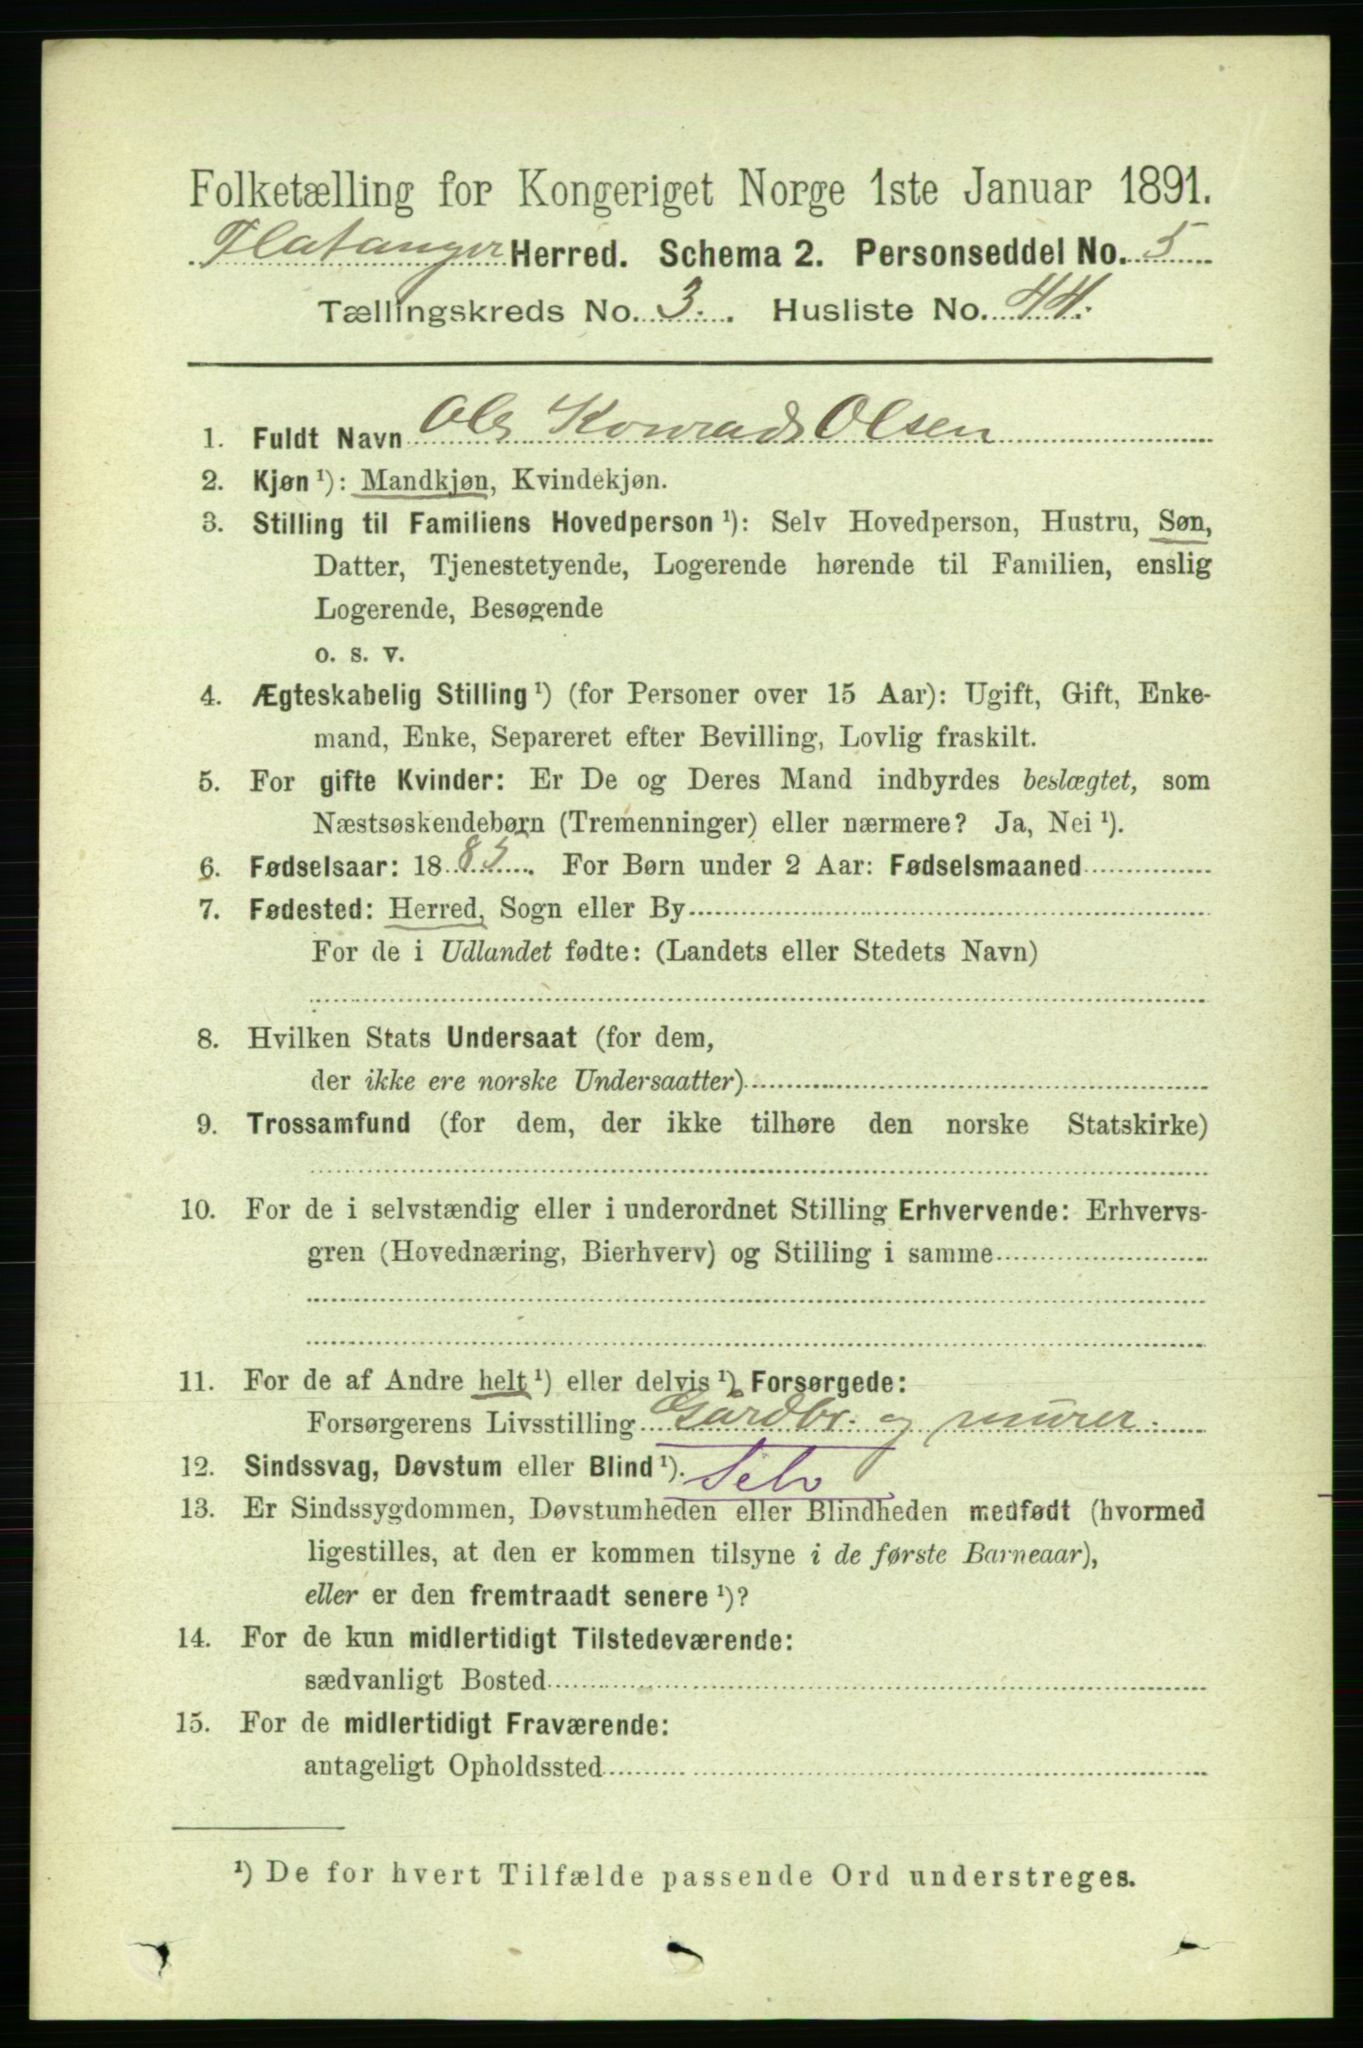 Folketælling for Kongeriget Norge 1ste Januar 1891.
Flatanger Herred. Schema 2. Personseddel No. 5
Tællingskreds No. 3. Husliste No. 44.
1. Fuldt Navn Ole Konrad Olsen
2. Kjøn ¹): Mandkjøn, Kvindekjøn.
3. Stilling til Familiens Hovedperson ¹): Selv Hovedperson, Hustru, Søn,
Datter, Tjenestetyende, Logerende hørende til Familien, enslig
Logerende, Besøgende
o. s. v.
4. Ægteskabelig Stilling ¹) (for Personer over 15 Aar): Ugift, Gift, Enke-
mand, Enke, Separeret efter Bevilling, Lovlig fraskilt.
5. For gifte Kvinder: Er De og Deres Mand indbyrdes beslægtet, som
Næstsøskendebørn (Tremenninger) eller nærmere? Ja, Nei ¹).
6. Fødselsaar: 1885. For Børn under 2 Aar: Fødselsmaaned
7. Fødested: Herred, Sogn eller By
For de i Udlandet fødte: (Landets eller Stedets Navn)
8. Hvilken Stats Undersaat (for dem,
der ikke ere norske Undersaatter)
9. Trossamfund (for dem, der ikke tilhøre den norske Statskirke)
10. For de i selvstændig eller i underordnet Stilling Erhvervende: Erhvervs-
gren (Hovednæring, Bierhverv) og Stilling i samme
11. For de af Andre helt ¹) eller delvis ¹) Forsørgede:
Forsørgerens Livsstilling Gårdbr. og murer.
12. Sindssvag, Døvstum eller Blind ¹). Selv
13. Er Sindssygdommen, Døvstumheden eller Blindheden medfødt (hvormed
ligestilles, at den er kommen tilsyne i de første Barneaar),
eller er den fremtraadt senere ¹)?
14. For de kun midlertidigt Tilstedeværende:
sædvanligt Bosted
15. For de midlertidigt Fraværende:
antageligt Opholdssted
¹) De for hvert Tilfælde passende Ord understreges.